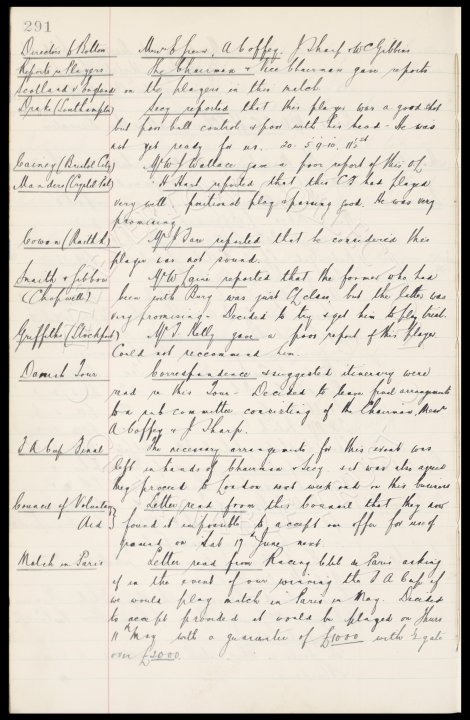 291
Directors to Bolton Messrs E Green, A Coffey, J Sharp & W C Gibbins
Reports re Players The Chairman & Vice Chairman gave reports
Scotland v England on the players in this match.
Drake (Southampton) Secy reported that this player was a good shot
but poor ball control & poor with his head - He was
not yet ready for us. 20. 5.9.10. 11½ st
Cainey (Bristol City) Mr W J Wallace gave a poor report of this OL
Manders (Crystal Pal) " H Hart reported that this CF had played
very well, positional play & passing good. He was very
promising
Cowan (Raith R) Mr J reported that he considered this
player was not sound.
Smaith & Gibbon Mr W reported that the former who had
(Chopwell) been with Bury was just CL class, but the latter was
very promising - Decided to try & get him to play trial.
Griffiths (Stockport) Mr T Kelly gave a poor report of this Player
Could not reccommend him.
Danish Tour Correspondence & suggested itinerary were
read re this Tour - Decided to leave final arrangements
to a sub committee consisting of the Chairman, Messrs
A Coffey & J Sharp.
F A Cup Final The necessary arrangements for this event was
left in hands of Chairman & Secy & it was also agreed
they proceed to London next week end on this business
Council of Voluntary Letter read from this Council that they now
Aid } found it impossible to accept our offer for use of
ground on Sat 17th June next.
Match in Paris Letter read from Racing Club de Paris asking
if in the event of our winning the F A Cup if
we would play match in Paris in May. Decided
to accept provided it would be played on Thurs
11th May with a guarantee of £1000 with ½ gate
over £2000.